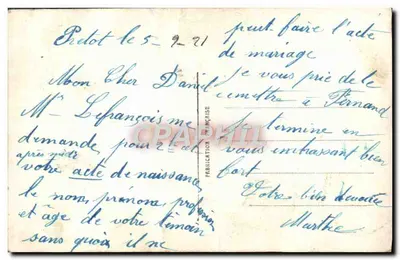 Pretot le 5-9-21
Mon Cher Daniel
Mr Lefrançois me
demande pour 2 al
après midi
votre acte de naissance
le nom, prénoms profession
et âge de votre témoin
sans quoi il ne
peut faire l'acte
de mariage
je vous prie de le
remettre à Fernand
Je termine en
vous embrassant bien
fort
Votre bien dévouée
Marthe
FABRICATION FRANÇAISE
CPARAMA